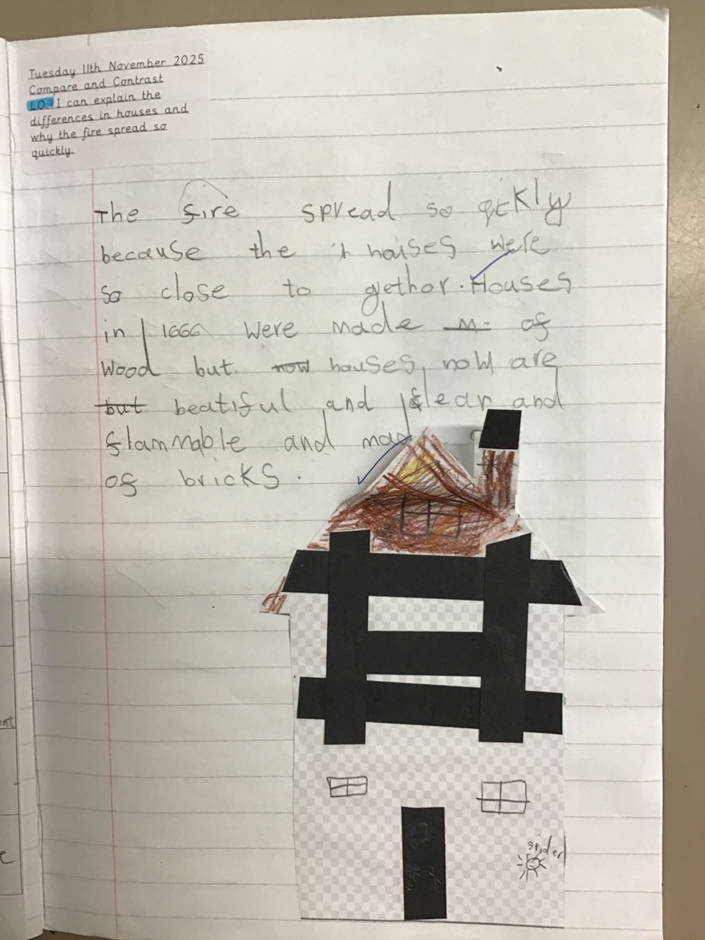 Tuesday 11th November 2025
Compare and Contrast
LO: I can explain the
differences in houses and
why the fire spread so
quickly.
The fire spread so qckly
because the houses were
so close to gethor. Houses
in 1666 were made of
wood but. now houses, now are
but beatiful and clean and
flamnable and mad
of bricks.
spider